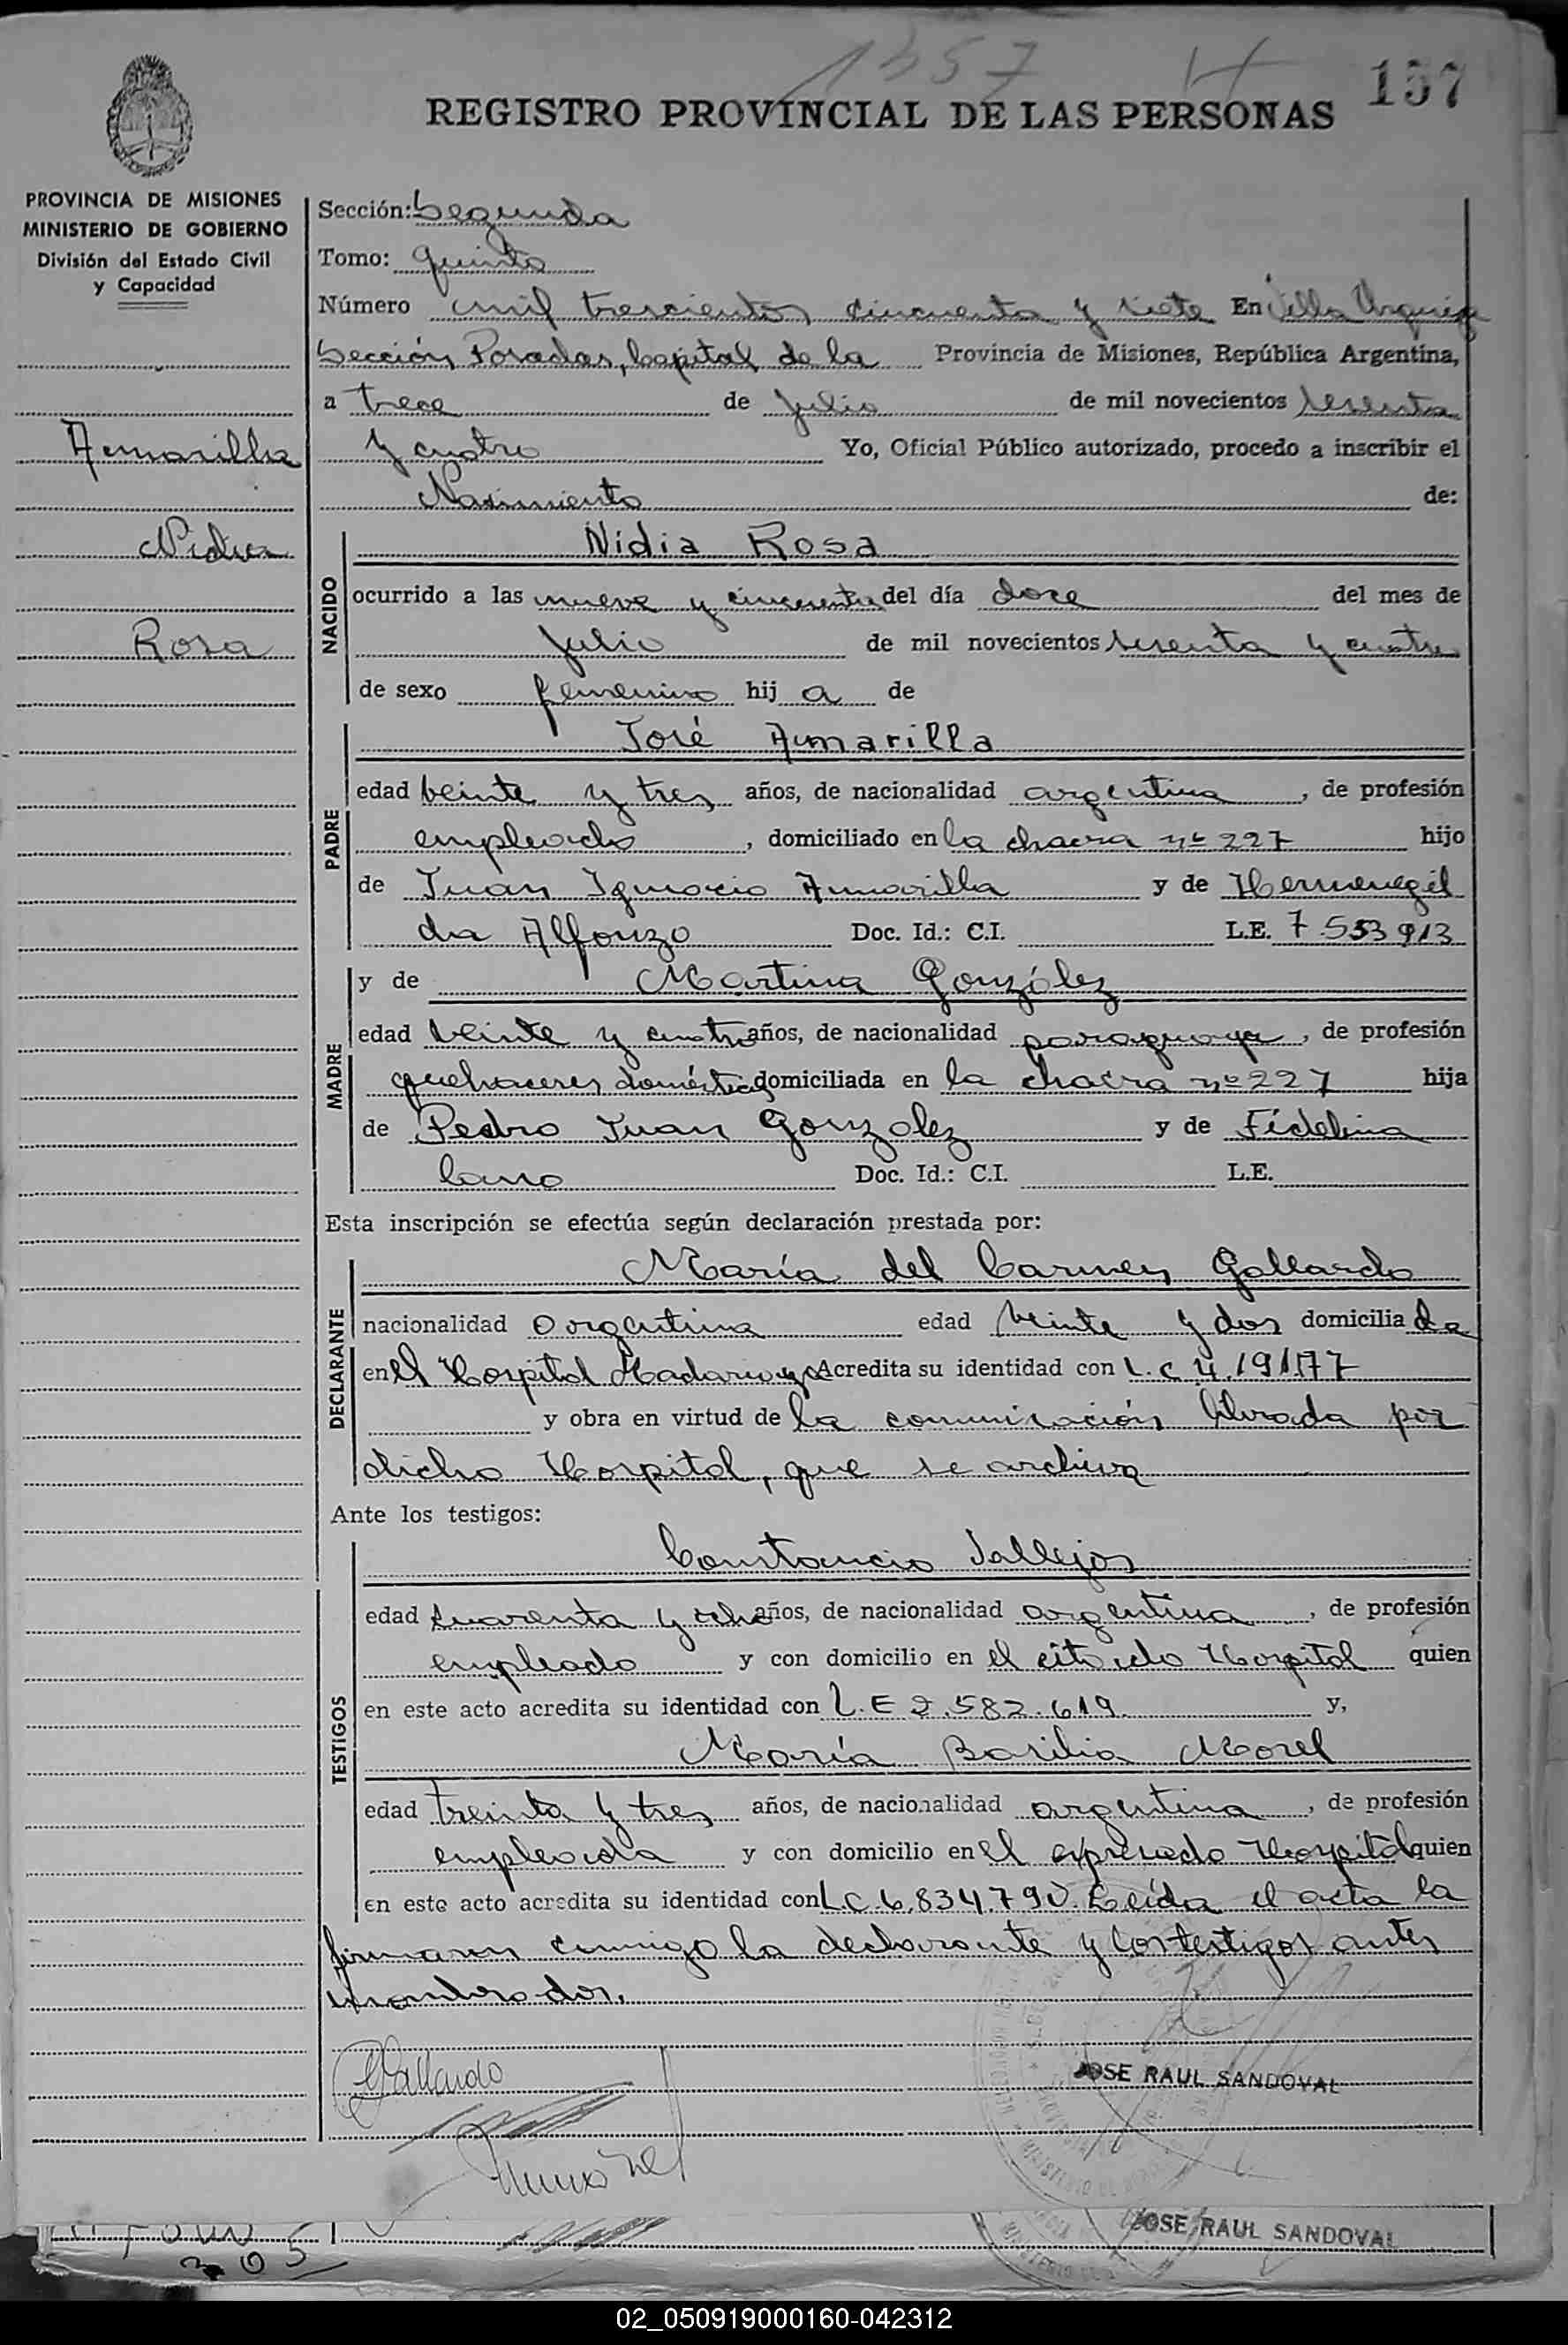 1357
157
REGISTRO PROVINCIAL DE LAS PERSONAS
PROVINCIA DE MISIONES
MINISTERIO DE GOBIERNO
División del Estado Civil
y Capacidad
Amarilla
Nidia
Rosa
Sección: Segunda
Tomo: quinto
Número mil trescientos cincuenta y siete En Villa Urquiza
Sección Posadas, Capital de la Provincia de Misiones, República Argentina,
a trece de julio de mil novecientos sesenta
y cuatro Yo, Oficial Público autorizado, procedo a inscribir el
Nacimiento de:
NACIDO
Nidia Rosa
ocurrido a las nueve y cincuenta del día doce del mes de
julio de mil novecientos sesenta y cuatro
de sexo femenino hij a de
PADRE
José Amarilla
edad veinte y tres años, de nacionalidad argentina, de profesión
empleado, domiciliado en la chacra nº 227 hijo
de Juan Ignacio Amarilla y de Hermenegil
da Alfonzo Doc. Id.: C.I. L.E. 7.553913
MADRE
y de Martina González
edad veinte y cuatro años, de nacionalidad paraguaya, de profesión
quehaceres domésticos domiciliada en la chacra nº 227 hija
de Pedro Juan Gonzalez y de Fidelina
Cano Doc. Id.: C.I. L.E.
Esta inscripción se efectúa según declaración prestada por:
DECLARANTE
María del Carmen Gallardo
nacionalidad argentina edad veinte y dos domicilia da
en el Hospital Madariaga Acredita su identidad con L.C 4.191.177
y obra en virtud de la comunicación librada por
dicho Hospital, que se archiva
Ante los testigos:
TESTIGOS
Constancio Vallejos
edad cuarenta y ocho años, de nacionalidad argentina, de profesión
empleado y con domicilio en el citado Hospital quien
en este acto acredita su identidad con L.E 2.582.619. y,
María Basilia Morel
edad treinta y tres años, de nacionalidad argentina, de profesión
empleada y con domicilio en el expresado Hospital quien
en este acto acredita su identidad con L.C.6.834.790. Leída el acta la
firmaron conmigo la declarante y los testigos antes
nombrados.
Gallardo
JOSE RAUL SANDOVAL
JOSE RAUL SANDOVAL
305
02_050919000160-042312